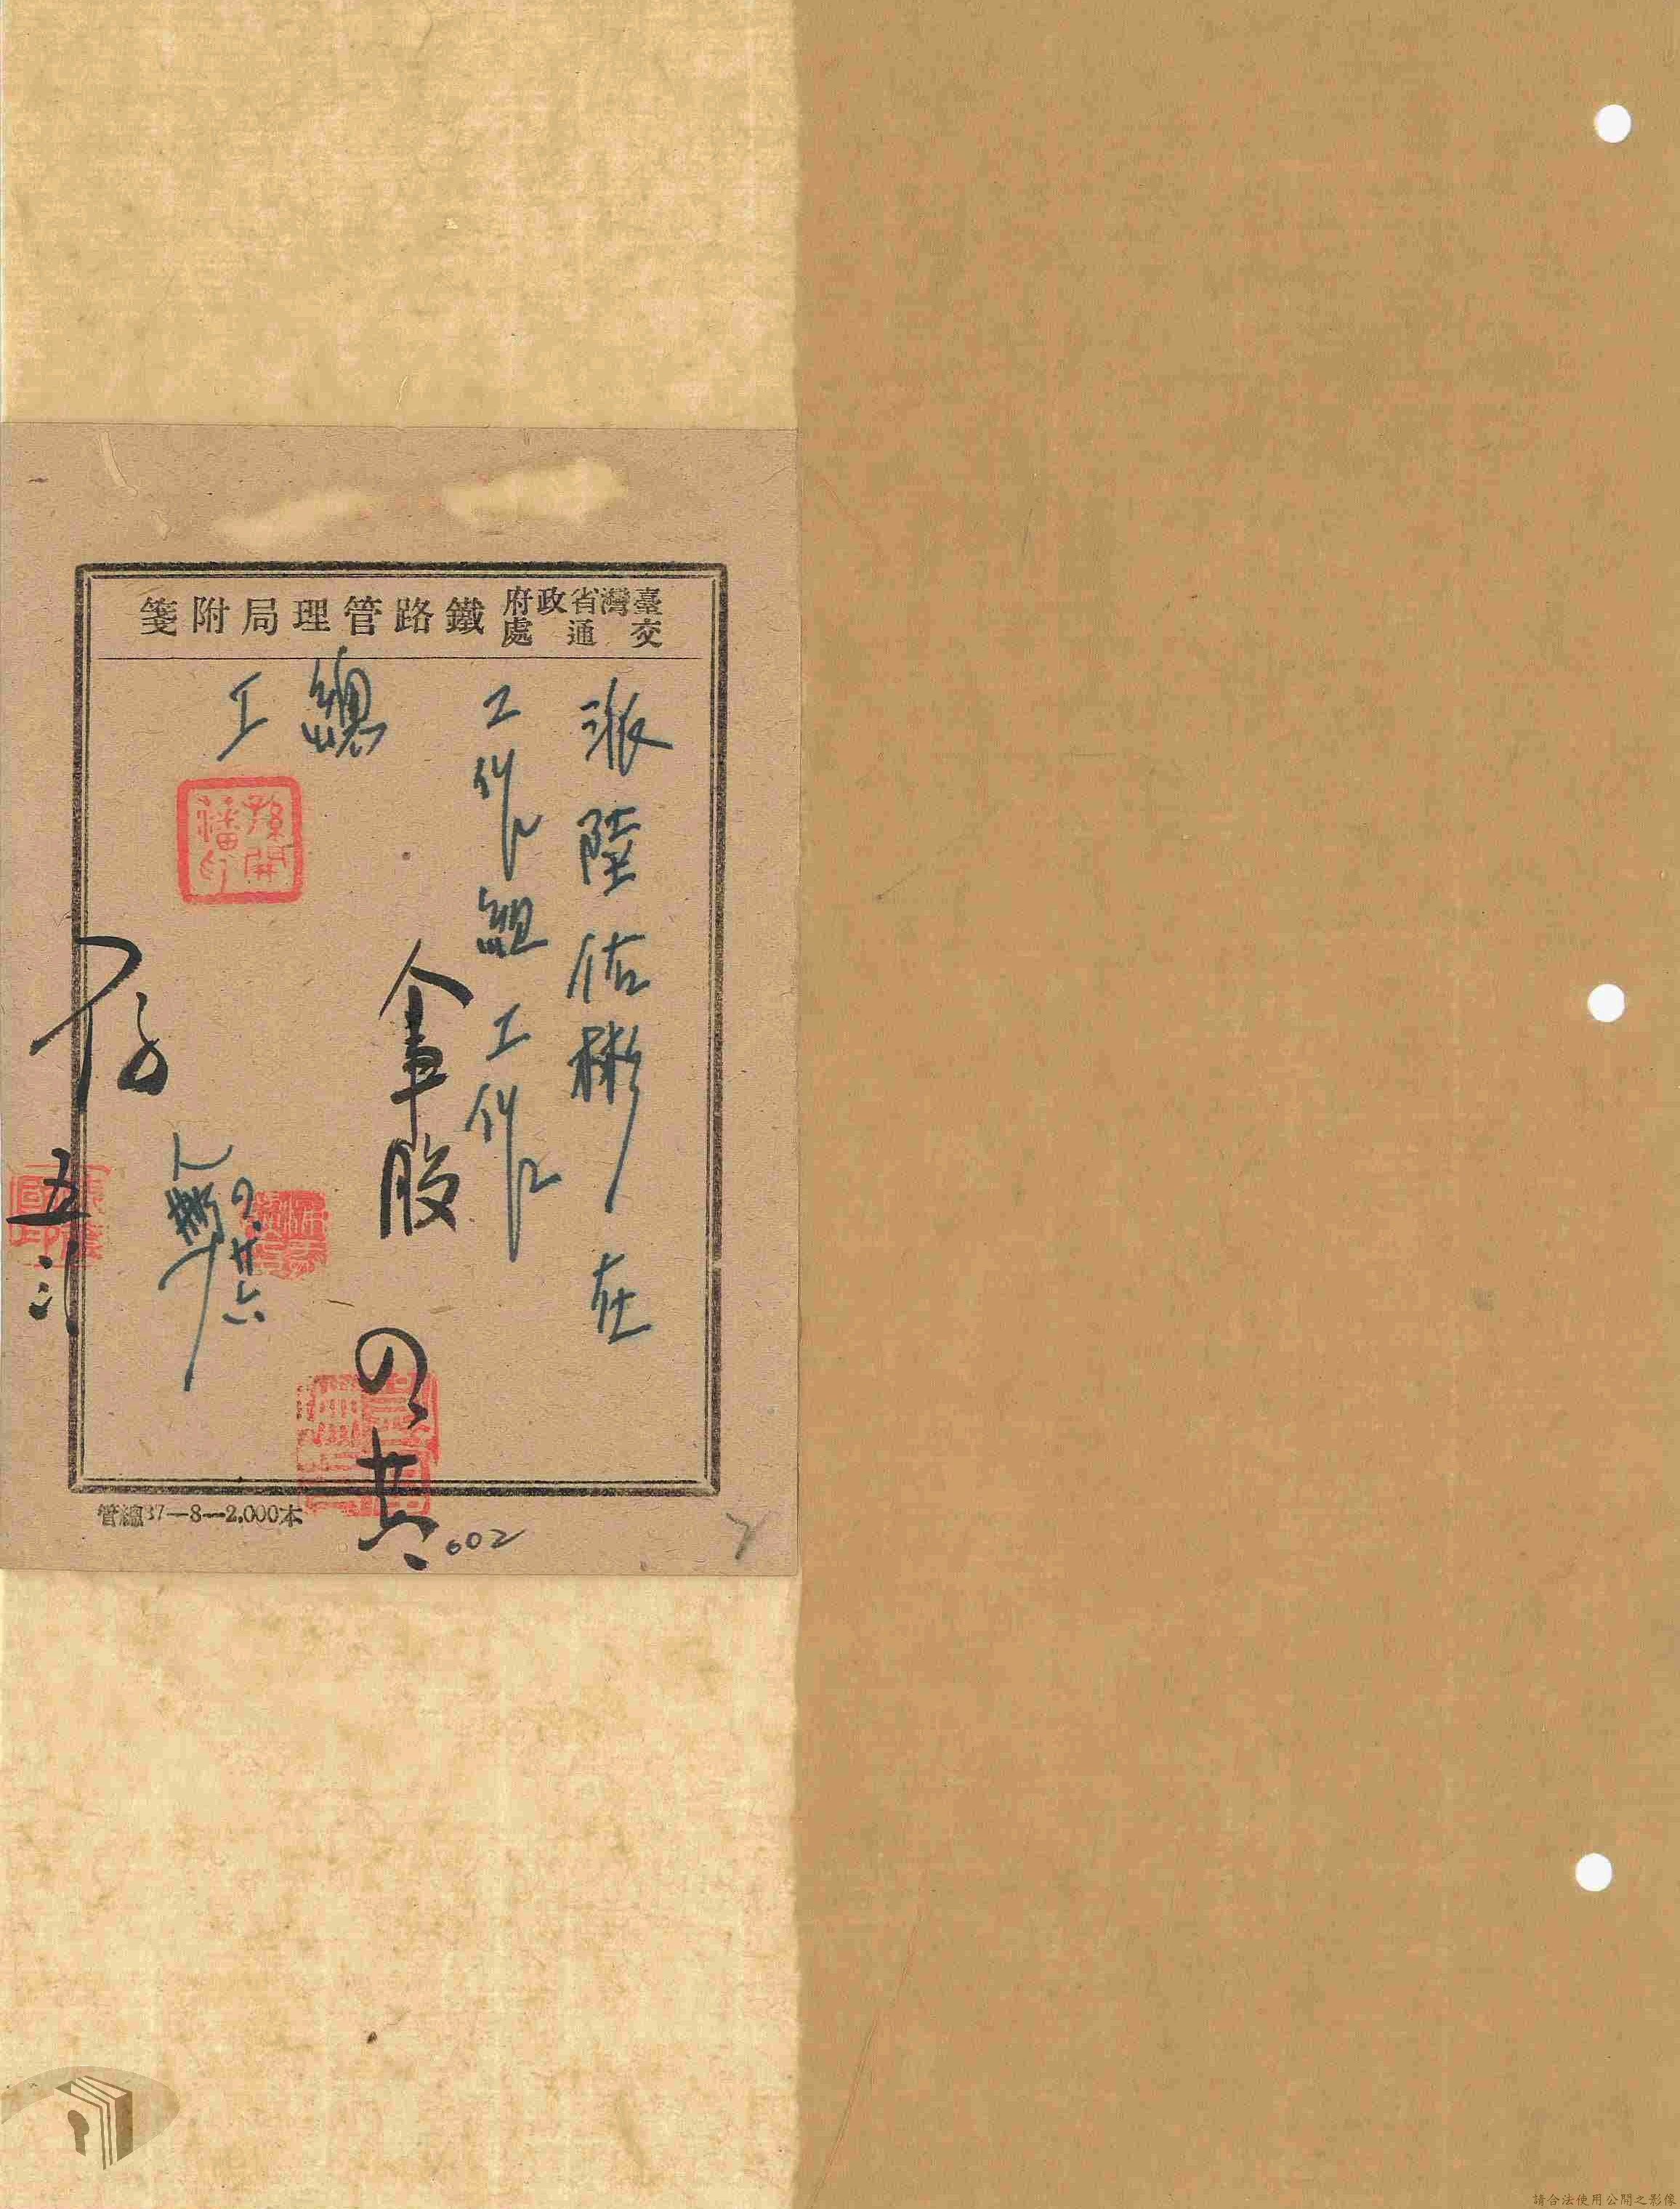 臺灣省政府交通處鐵路管理局附箋
派陸佑彬在
工作組工作
總
工
孫開
印
股
の廿六
の廿六
存
五
管總37—8—2,000本
602
請合法使用公開之影像